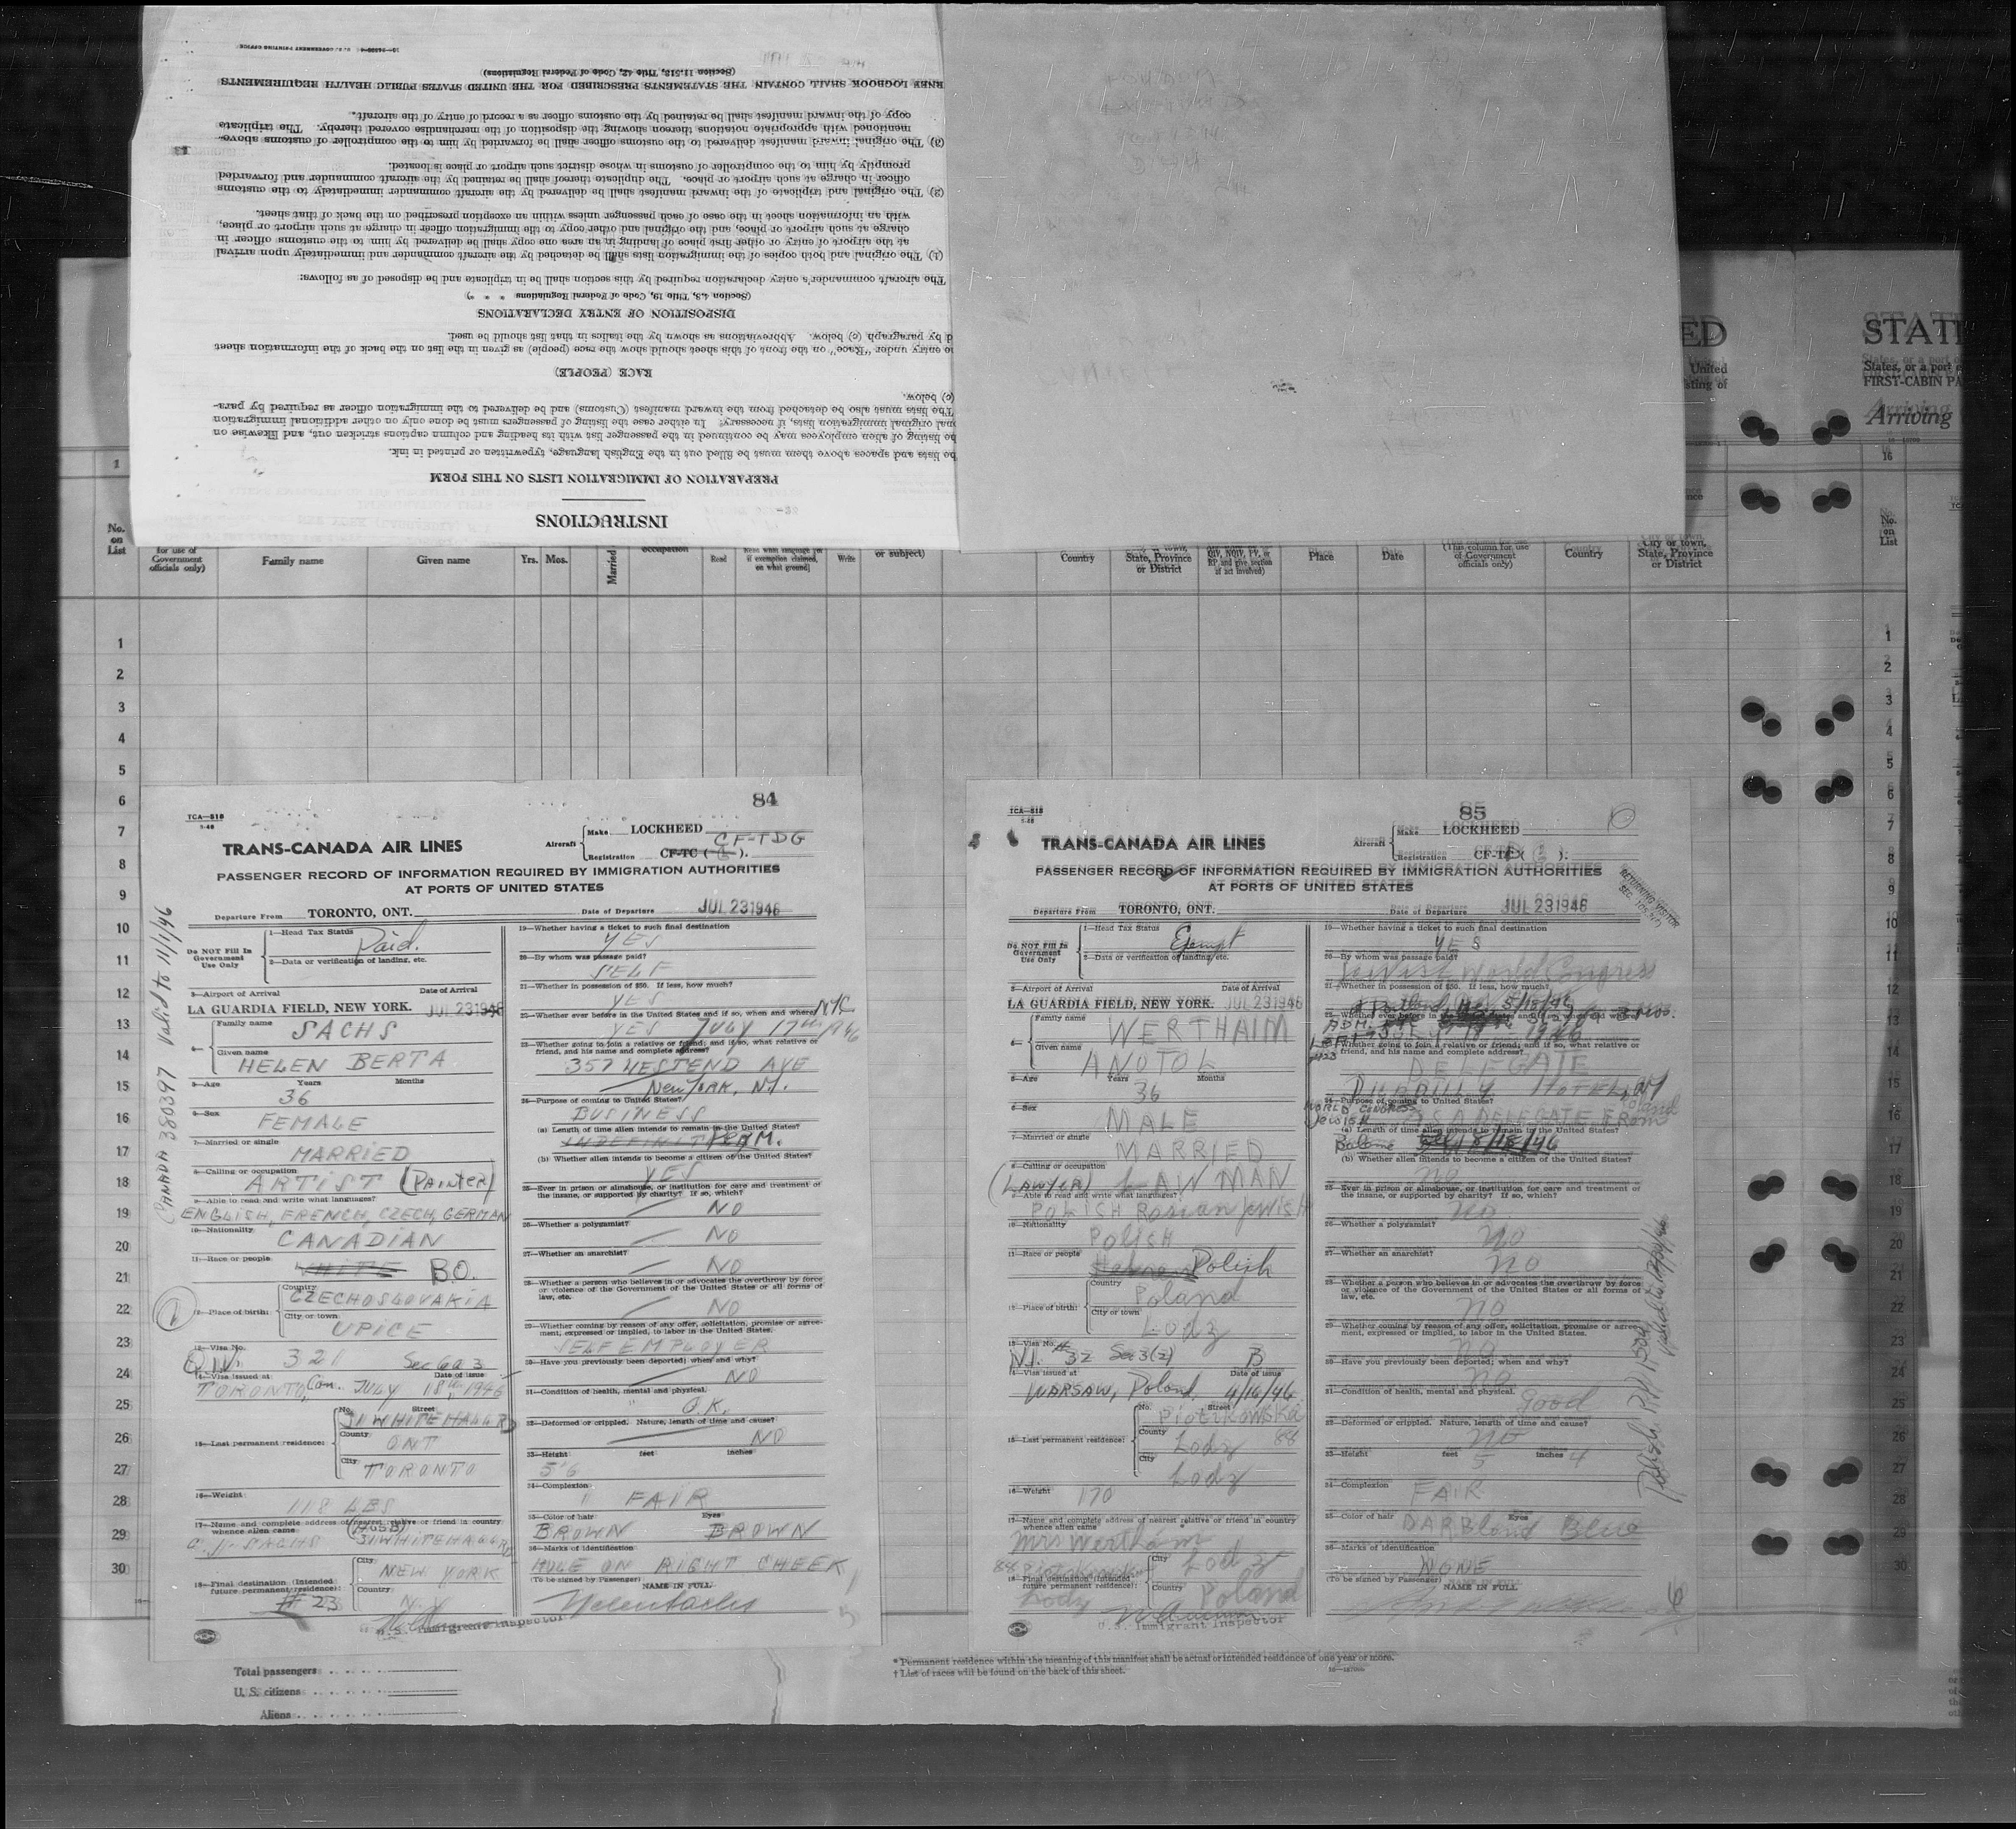 INSTRUCTIONS
PREPARATION OF IMMIGRATION LISTS ON THIS FORM
he lists and spaces above them must be filled out in the English language, typewritten or printed in ink.
he listing of alien employees may be continued in the passenger list with its heading and column captions stricken out, and likewise on
nal original immigration lists, if necessary. In either case the listing of passengers must be done only on other additional immigration
The lists must also be detached from the inward manifest (Customs) and be delivered to the immigration officer as required by para-
(c) below.
RACE (PEOPLE)
he entry under "Race" on the front of this sheet should show the race (people) as given in the list on the back of the information sheet
d by paragraph (c) below. Abbreviations as shown by the italics in that list should be used.
DISPOSITION OF ENTRY DECLARATIONS
(Section 4.3, Title 19, Code of Federal Regulations * * *)
The aircraft commander's entry declaration required by this section shall be in triplicate and be disposed of as follows:
(1) The original and both copies of the immigration lists shall be detached by the aircraft commander and immediately upon arrival
at the airport of entry or other first place of landing in an area one copy shall be delivered by him to the customs officer in
charge at such airport or place, and the original and other copy to the immigration officer in charge at such airport or place,
with an information sheet in the case of each passenger unless within an exception prescribed on the back of that sheet.
(2) The original and triplicate of the inward manifest shall be delivered by the aircraft commander immediately to the customs
officer in charge at such airport or place. The duplicate thereof shall be retained by the aircraft commander and forwarded
promptly by him to the comptroller of customs in whose district such airport or place is located.
(3) The original inward manifest delivered to the customs officer shall be forwarded by him to the comptroller of customs above-
mentioned with appropriate notations thereon showing the disposition of the merchandise covered thereby. The triplicate
copy of the inward manifest shall be retained by the customs officer as a record of entry of the aircraft.
RNEY LOGBOOK SHALL CONTAIN THE STATEMENTS PRESCRIBED FOR THE UNITED STATES PUBLIC HEALTH REQUIREMENTS
(Section 11.513, Title 42, Code of Federal Regulations)
ED
United
sting of
STATE
States, or a port
FIRST-CABIN PA
Arriving
1
16
No. on List
for use of Government officials only)
Family name
Given name
Yrs.
Mos.
Married
occupation
Read
Read what language (or if exemption claimed, on what ground)
Write
or subject)
Country
State, Province or District
Place
Date
(This column for use of Government officials only)
Country
City or town, State, Province or District
No. on List
1
2
3
4
5
6
7
8
9
10
11
12
13
14
15
16
17
18
19
20
21
22
23
24
25
26
27
28
29
30
84
TCA—518
TRANS-CANADA AIR LINES
Aircraft
Make LOCKHEED
CF-TDG
Registration CF-TC ( ).
PASSENGER RECORD OF INFORMATION REQUIRED BY IMMIGRATION AUTHORITIES
AT PORTS OF UNITED STATES
Departure From TORONTO, ONT.
Date of Departure JUL 23 1946
CANADA 380397 Valid to 11/1/46
Do NOT Fill In Government Use Only
1—Head Tax Status Paid.
2—Data or verification of landing, etc.
3—Airport of Arrival
Date of Arrival
LA GUARDIA FIELD, NEW YORK. JUL 23 1946
4— Family name SACHS
Given name HELEN BERTA
5—Age Years Months
36
6—Sex
FEMALE
7—Married or single
MARRIED
8—Calling or occupation
ARTIST (PAINTER)
9—Able to read and write what languages?
ENGLISH, FRENCH, CZECH, GERMAN
10—Nationality
CANADIAN
11—Race or people
WHITE BO.
12—Place of birth: Country
CZECHOSLOVAKIA
City or town
UPICE
13—Visa No.
Q.I.V. 321 Sec 6 a 3
14—Visa issued at Date of issue
TORONTO, Can. JULY 18th 1946
15—Last permanent residence: No. Street
31 WHITEHALL RD
County ONT
City TORONTO
16—Weight
118 LBS
17—Name and complete address of nearest relative or friend in country whence alien came
(HUSB)
SACHS 31 WHITEHALL RD
18—Final destination (Intended future permanent residence):
City NEW YORK
Country N.Y.
# 23
U.S. Immigrant Inspector
19—Whether having a ticket to such final destination
YES
20—By whom was passage paid?
SELF
21—Whether in possession of $50. If less, how much?
YES
22—Whether ever before in the United States and if so, when and where?
YES JULY 17th 1946 NYC
23—Whether going to join a relative or friend; and if so, what relative or friend, and his name and complete address?
357 WESTEND AVE
New York, N.Y.
24—Purpose of coming to United States?
BUSINESS
(a) Length of time alien intends to remain in the United States?
INDEFINIT PERM.
(b) Whether alien intends to become a citizen of the United States?
YES
25—Ever in prison or almshouse, or institution for care and treatment of the insane, or supported by charity? If so, which?
NO
26—Whether a polygamist?
NO
27—Whether an anarchist?
NO
28—Whether a person who believes in or advocates the overthrow by force or violence of the Government of the United States or all forms of law, etc.
NO
29—Whether coming by reason of any offer, solicitation, promise or agreement, expressed or implied, to labor in the United States.
SELF EMPLOYER
30—Have you previously been deported; when and why?
NO
31—Condition of health, mental and physical.
O.K.
32—Deformed or crippled. Nature, length of time and cause?
NO
33—Height feet inches
5'6
34—Complexion
FAIR
35—Color of hair Eyes
BROWN BROWN
36—Marks of identification
MOLE ON RIGHT CHEEK
(To be signed by Passenger) NAME IN FULL
Helen Sachs
85
TCA—518
TRANS-CANADA AIR LINES
Aircraft
Make LOCKHEED
Registration CF-TC ( ).
PASSENGER RECORD OF INFORMATION REQUIRED BY IMMIGRATION AUTHORITIES
AT PORTS OF UNITED STATES
RETURNING VISITOR
Departure From TORONTO, ONT.
Date of Departure JUL 23 1946
Do NOT Fill In Government Use Only
1—Head Tax Status Exempt
2—Data or verification of landing, etc.
3—Airport of Arrival
Date of Arrival
LA GUARDIA FIELD, NEW YORK. JUL 23 1946
4— Family name WERTHAIM
Given name ANOTOL
5—Age Years Months
36
6—Sex
MALE
7—Married or single
MARRIED
8—Calling or occupation
(LAWYER) LAW MAN
9—Able to read and write what languages?
POLISH Rosian Jewish
10—Nationality
Polish
11—Race or people
Hebrew Polish
12—Place of birth: Country
Poland
City or town
Lodz
13—Visa No.
N.I. #32 Sec 3(2) B
14—Visa issued at Date of issue
WARSAW, Poland 4/16/46
15—Last permanent residence: No. Street
Piotrkowska 88
County Lodz
City Lodz
16—Weight
170
17—Name and complete address of nearest relative or friend in country whence alien came
Mrs Wertham
18—Final destination (Intended future permanent residence):
City Lodz
Country Poland
Lodz
U.S. Immigrant Inspector
19—Whether having a ticket to such final destination
YES
20—By whom was passage paid?
Jewish World Congress
21—Whether in possession of $50. If less, how much?
22—Whether ever before in the United States and if so, when and where?
23—Whether going to join a relative or friend; and if so, what relative or friend, and his name and complete address?
DELEGATE
HOTEL
24—Purpose of coming to United States?
WORLD CONGRESS Jewish AS A DELEGATE From Poland
(a) Length of time alien intends to remain in the United States?
8/18/46
(b) Whether alien intends to become a citizen of the United States?
no
25—Ever in prison or almshouse, or institution for care and treatment of the insane, or supported by charity? If so, which?
no
26—Whether a polygamist?
no
27—Whether an anarchist?
no
28—Whether a person who believes in or advocates the overthrow by force or violence of the Government of the United States or all forms of law, etc.
no
29—Whether coming by reason of any offer, solicitation, promise or agreement, expressed or implied, to labor in the United States.
no
30—Have you previously been deported; when and why?
no
31—Condition of health, mental and physical.
good
32—Deformed or crippled. Nature, length of time and cause?
no
33—Height feet inches
5 4
34—Complexion
FAIR
35—Color of hair Eyes
DARBlond Blue
36—Marks of identification
NONE
(To be signed by Passenger) NAME IN FULL
Total passengers
U. S. citizens
Aliens
* Permanent residence within the meaning of this manifest shall be actual or intended residence of one year or more.
† List of races will be found on the back of this sheet.